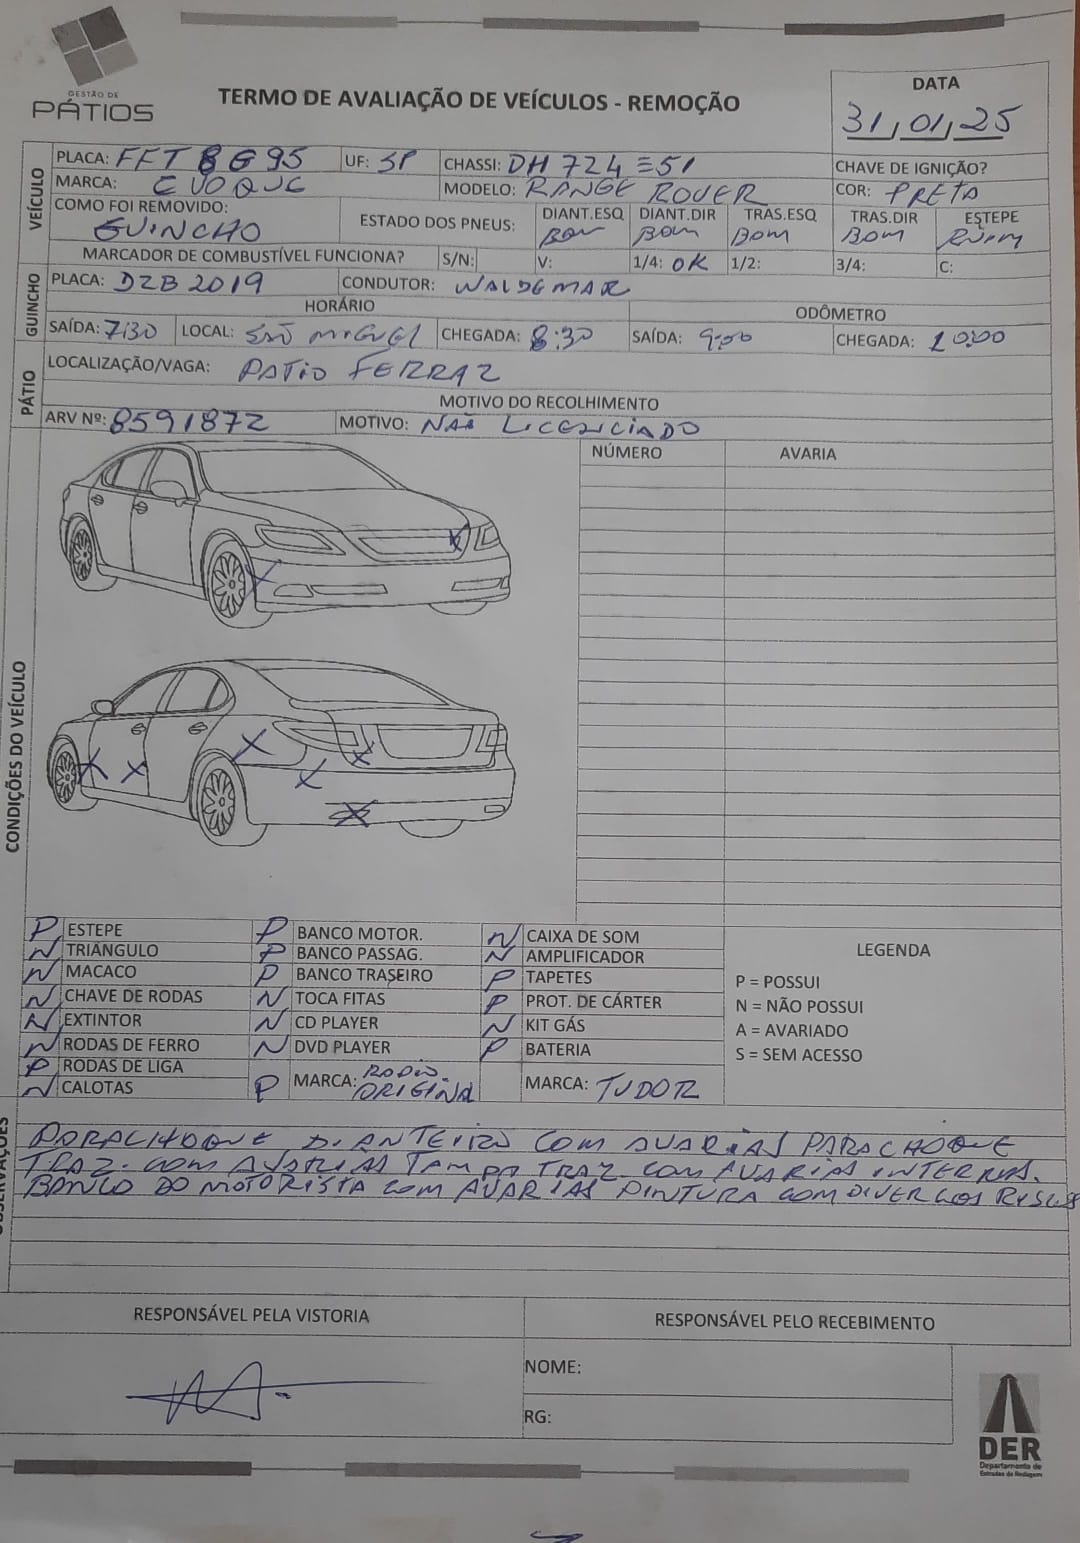 GESTÃO DE
PÁTIOS
TERMO DE AVALIAÇÃO DE VEÍCULOS - REMOÇÃO
DATA
31/01/25
VEÍCULO
PLACA: FFT8G95 UF: SP CHASSI: DH724351 CHAVE DE IGNIÇÃO?
MARCA: EVOQUE MODELO: RANGE ROVER COR: PRETA
COMO FOI REMOVIDO: GUINCHO ESTADO DOS PNEUS: DIANT.ESQ BOM DIANT.DIR BOM TRAS.ESQ BOM TRAS.DIR BOM ESTEPE RUIM
MARCADOR DE COMBUSTÍVEL FUNCIONA? S/N: V: 1/4: OK 1/2: 3/4: C:
GUINCHO
PLACA: DZB2019 CONDUTOR: WALDEMAR
HORÁRIO ODÔMETRO
SAÍDA: 7:30 LOCAL: SÃO MIGUEL CHEGADA: 8:30 SAÍDA: 9:00 CHEGADA: 10:00
PÁTIO
LOCALIZAÇÃO/VAGA: PATIO FERRAZ
MOTIVO DO RECOLHIMENTO
ARV Nº: 8591872 MOTIVO: NAÕ LICENCIADO
CONDIÇÕES DO VEÍCULO
NÚMERO AVARIA
P ESTEPE P BANCO MOTOR. N CAIXA DE SOM
N TRIÂNGULO P BANCO PASSAG. N AMPLIFICADOR
N MACACO P BANCO TRASEIRO P TAPETES
N CHAVE DE RODAS N TOCA FITAS P PROT. DE CÁRTER
N EXTINTOR N CD PLAYER N KIT GÁS
N RODAS DE FERRO N DVD PLAYER P BATERIA
P RODAS DE LIGA P MARCA: RADIO ORIGINAL MARCA: TUDOR
N CALOTAS
LEGENDA
P = POSSUI
N = NÃO POSSUI
A = AVARIADO
S = SEM ACESSO
OBSERVAÇÕES
PARACHOQUE DIANTEIRO COM AVARIAS PARACHOQUE
TRAZ. COM AVARIAS TAMPA TRAZ COM AVARIAS INTERNAS.
BANCO DO MOTORISTA COM AVARIAS PINTURA COM DIVERÇOS RISCOS
RESPONSÁVEL PELA VISTORIA RESPONSÁVEL PELO RECEBIMENTO
NOME:
RG:
DER
Departamento de
Estradas de Rodagem